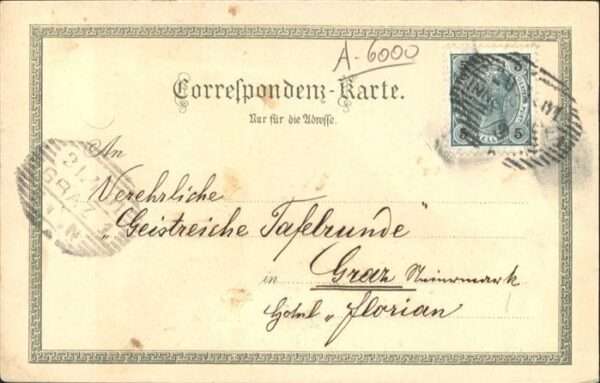 A-6000
Correspondenz-Karte.
Nur für die Adresse.
5 5
An
GRAZ
Verehrliche
"Geistreiche Tafelrunde"
in Graz Steiermark
Hôtel „Florian